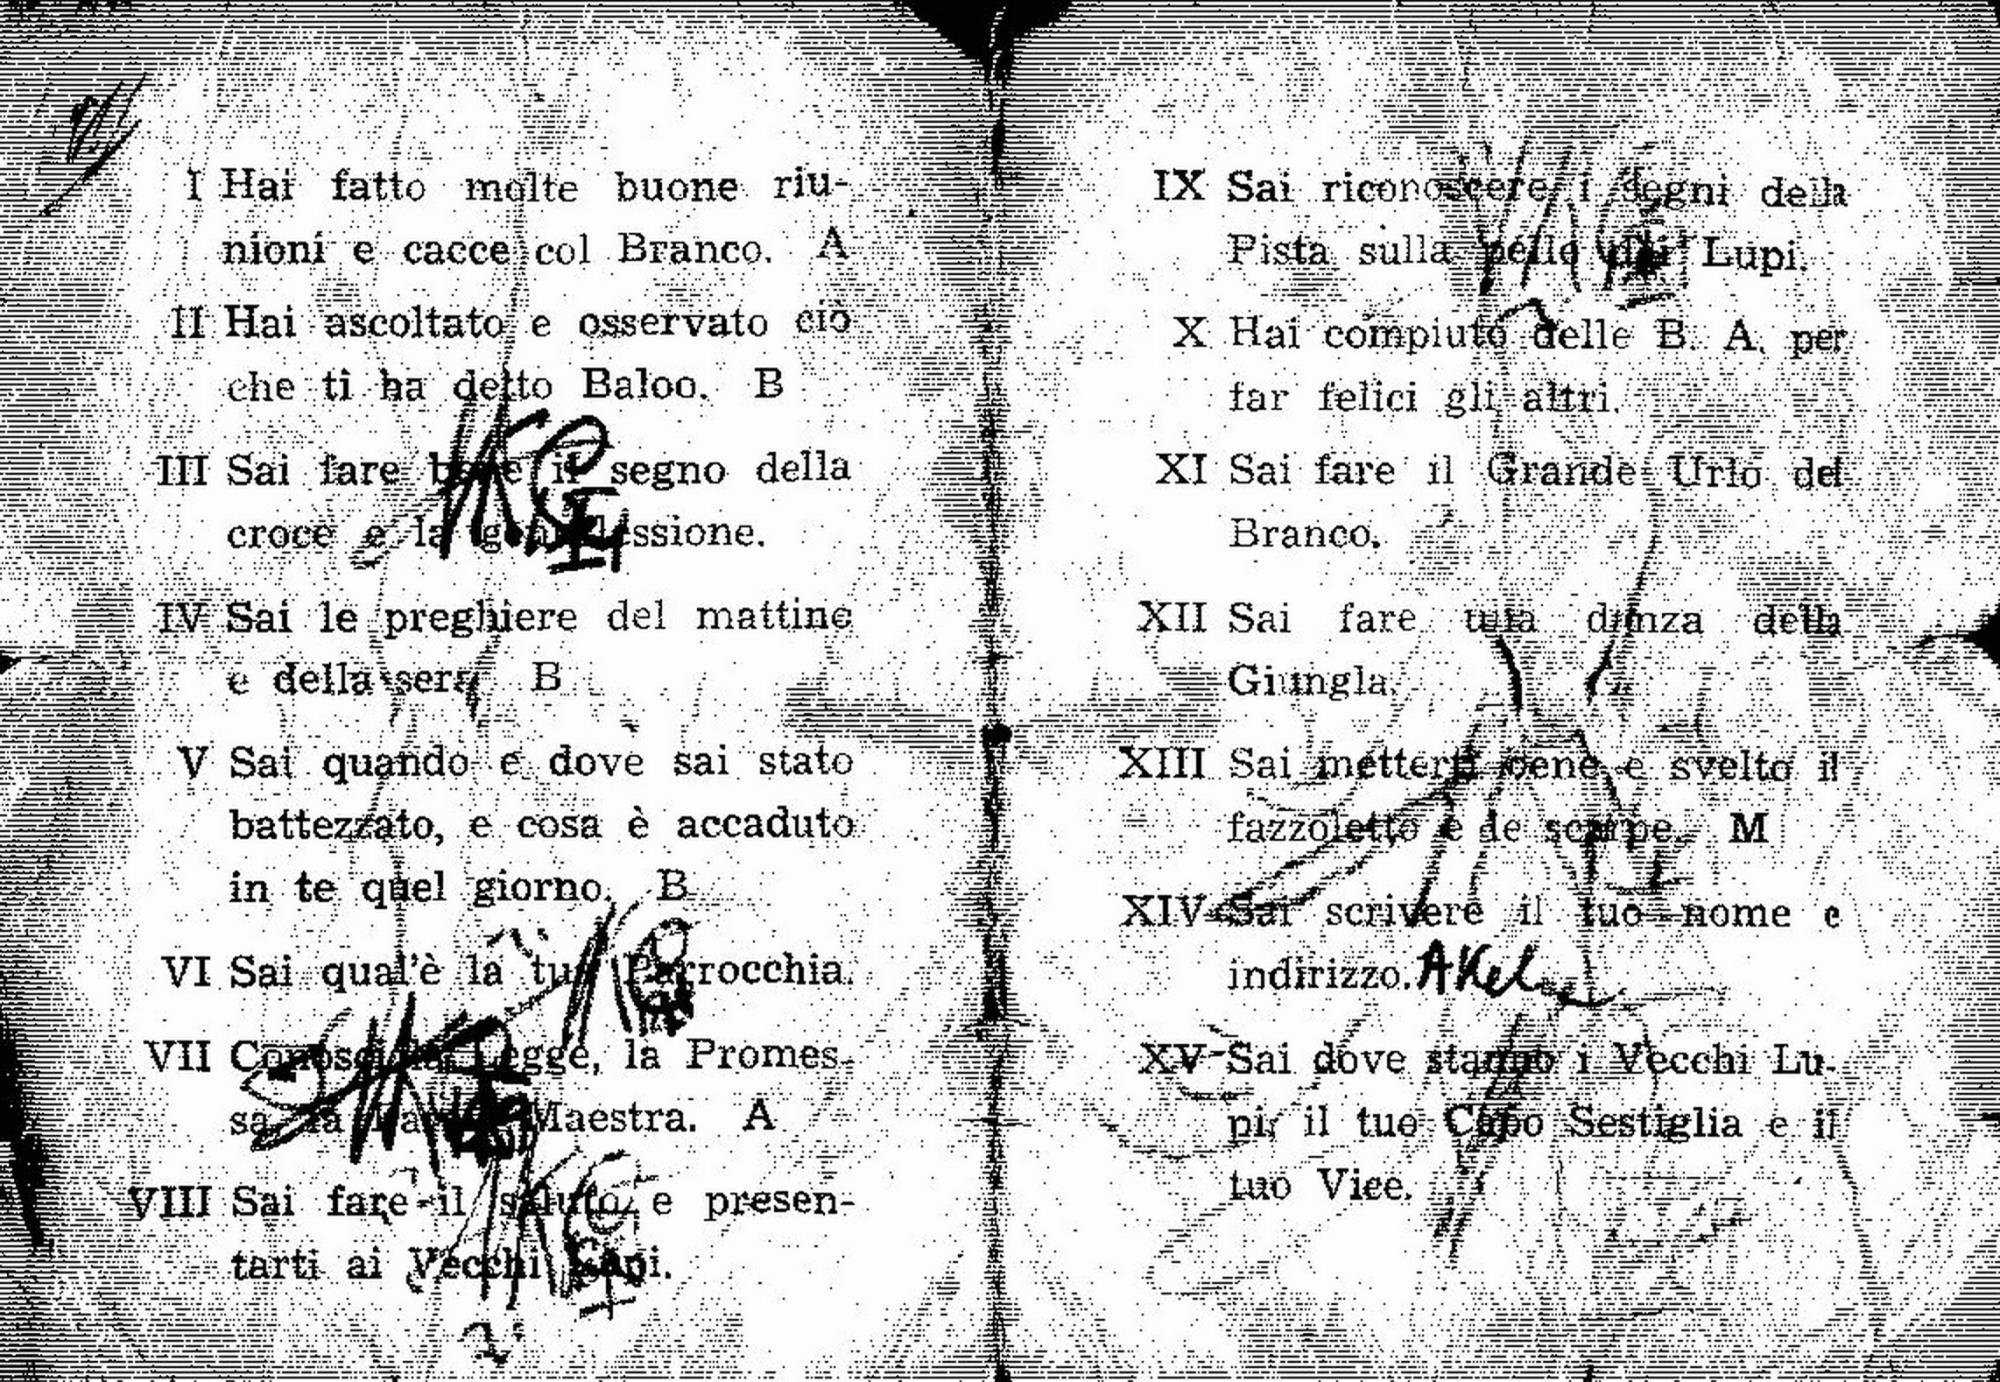 I Hai fatto molte buone riu-
nioni e cacce col Branco. A
II Hai ascoltato e osservato ciò
che ti ha detto Baloo. B
III Sai fare il segno della
croce e la
IV Sai le preghiere del mattino
e della sera B
V Sai quando e dove sai stato
battezzato, e cosa è accaduto
in te quel giorno. B
VI Sai qual'è la tua Parrocchia.
VII Legge, la Promes-
Maestra. A
VIII Sai fare il saluto e presen-
tarti ai Vecchi
IX Sai riconoscere i segni della
Pista sulla pelle dei Lupi.
X Hai compiuto delle B. A. per
far felici gli altri.
XI Sai fare il Grande Urlo del
Branco.
XII Sai fare danza della
Giungla.
XIII Sai metterti bene e svelto il
fazzoletto e le scarpe. M
XIV Sai scrivere il tuo nome e
indirizzo. Akela
XV Sai dove stanno i Vecchi Lu-
pi, il tuo Capo Sestiglia e il
tuo Vice.